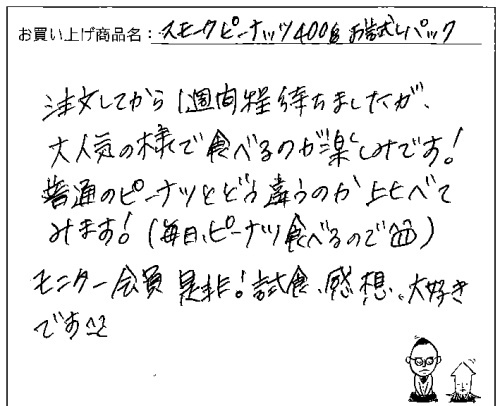 お買い上げ商品名：スモークピーナッツ400gお試しパック
注文してから1週間程待ちましたが、
大人気の様で食べるのが楽しみです！
普通のピーナツとどう違うのか比べて
みます！（毎日、ピーナツ食べるので）
モニター会員是非！試食、感想、大好き
です^^